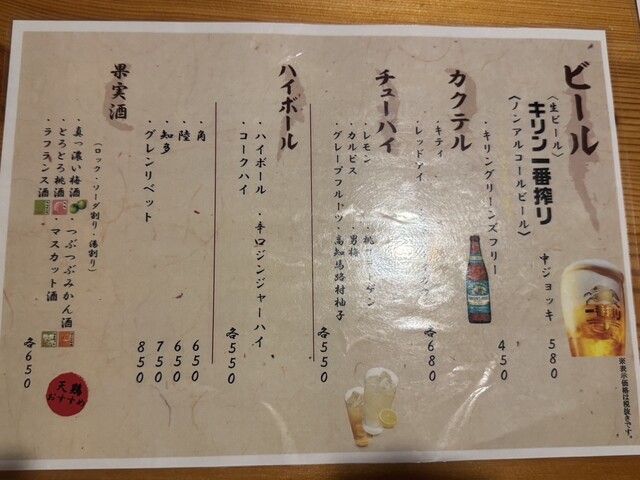 ビール
〈生ビール〉
キリン一番搾り
中ジョッキ 580
〈ノンアルコールビール〉
・キリングリーンズフリー
450
カクテル
・キティ
・レッドアイ
各680
チューハイ
・レモン
・カルピス ・男梅
・グレープフルーツ ・高知馬路村柚子
各550
ハイボール
・ハイボール ・辛口ジンジャーハイ
・コークハイ
各550
・角 650
・陸 650
・知多 750
・グレンリベット 850
果実酒
(ロック・ソーダ割り・湯割り)
・真っ濃い梅酒 ・つぶつぶみかん酒
・とろとろ桃酒 ・マスカット酒
・ラフランス酒
各650
天鶏
おすすめ
※表示価格は税抜きです。